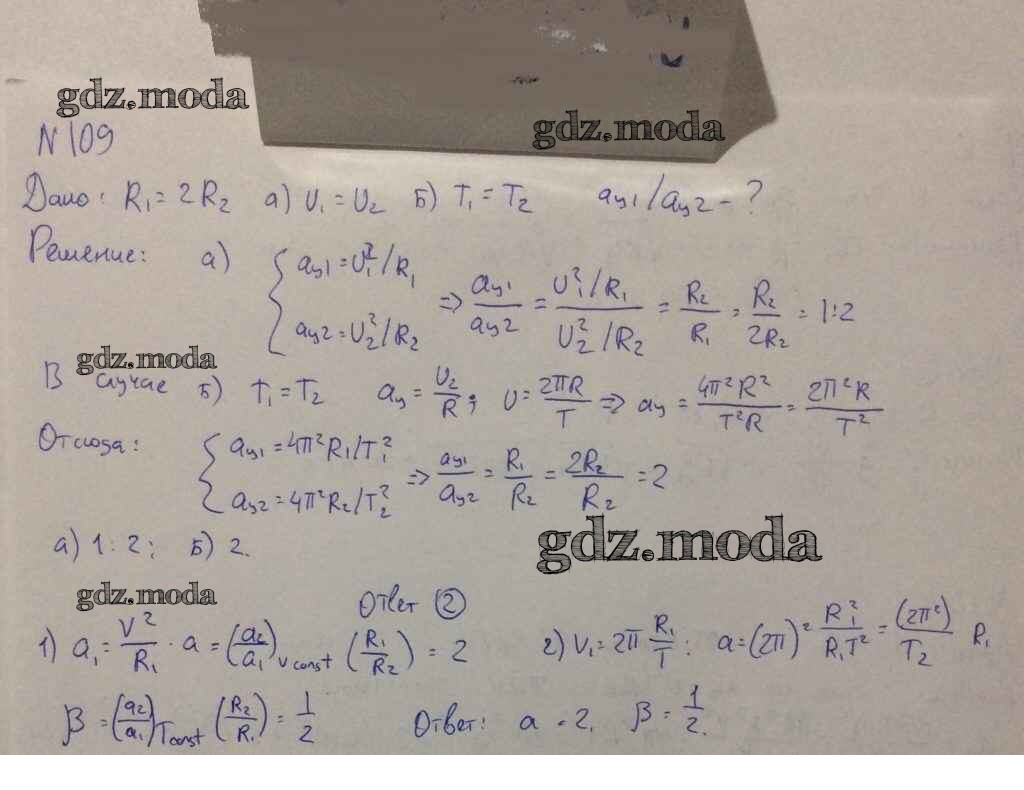 gdz.moda
gdz.moda
N 109
Дано: R₁ = 2R₂ а) υ₁ = υ₂ Б) T₁ = T₂ aц1/aц2 - ?
Решение: а) { aц1 = υ₁²/R₁
aц2 = υ₂²/R₂ => aц1/aц2 = (υ₁²/R₁)/(υ₂²/R₂) = R₂/R₁ = R₂/2R₂ = 1:2
gdz.moda
В случае Б) T₁ = T₂ aц = υ₂/R; υ = 2πR/T => aц = 4π²R²/T²R = 2π²R/T²
Отсюда: { aц1 = 4π²R₁/T₁²
aц2 = 4π²R₂/T₂² => aц1/aц2 = R₁/R₂ = 2R₂/R₂ = 2
gdz.moda
а) 1:2; Б) 2.
gdz.moda
Ответ ②
1) a₁ = V²/R₁ · a = (a₂/a₁)v const (R₁/R₂) = 2 2) V₁ = 2π R₁/T: a = (2π)² R₁²/R₁T² = (2π²)/T₂ R₁
β = (a₂/a₁)T const (R₂/R₁) = 1/2 Ответ: a = 2, β = 1/2.